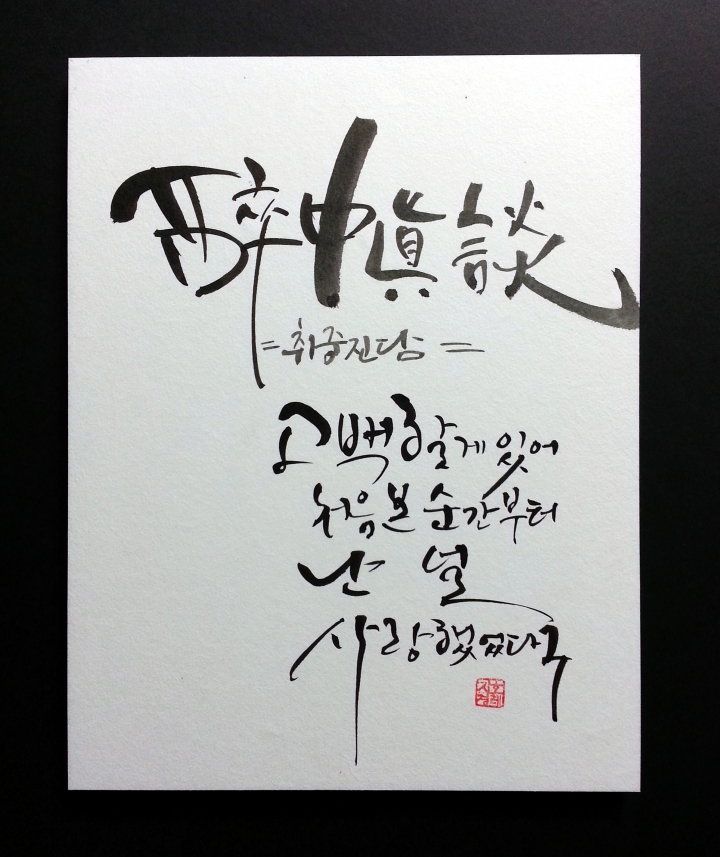 醉中眞談
=취중진담=
고백할게 있어
처음 본 순간부터
난 널
사랑했었다구